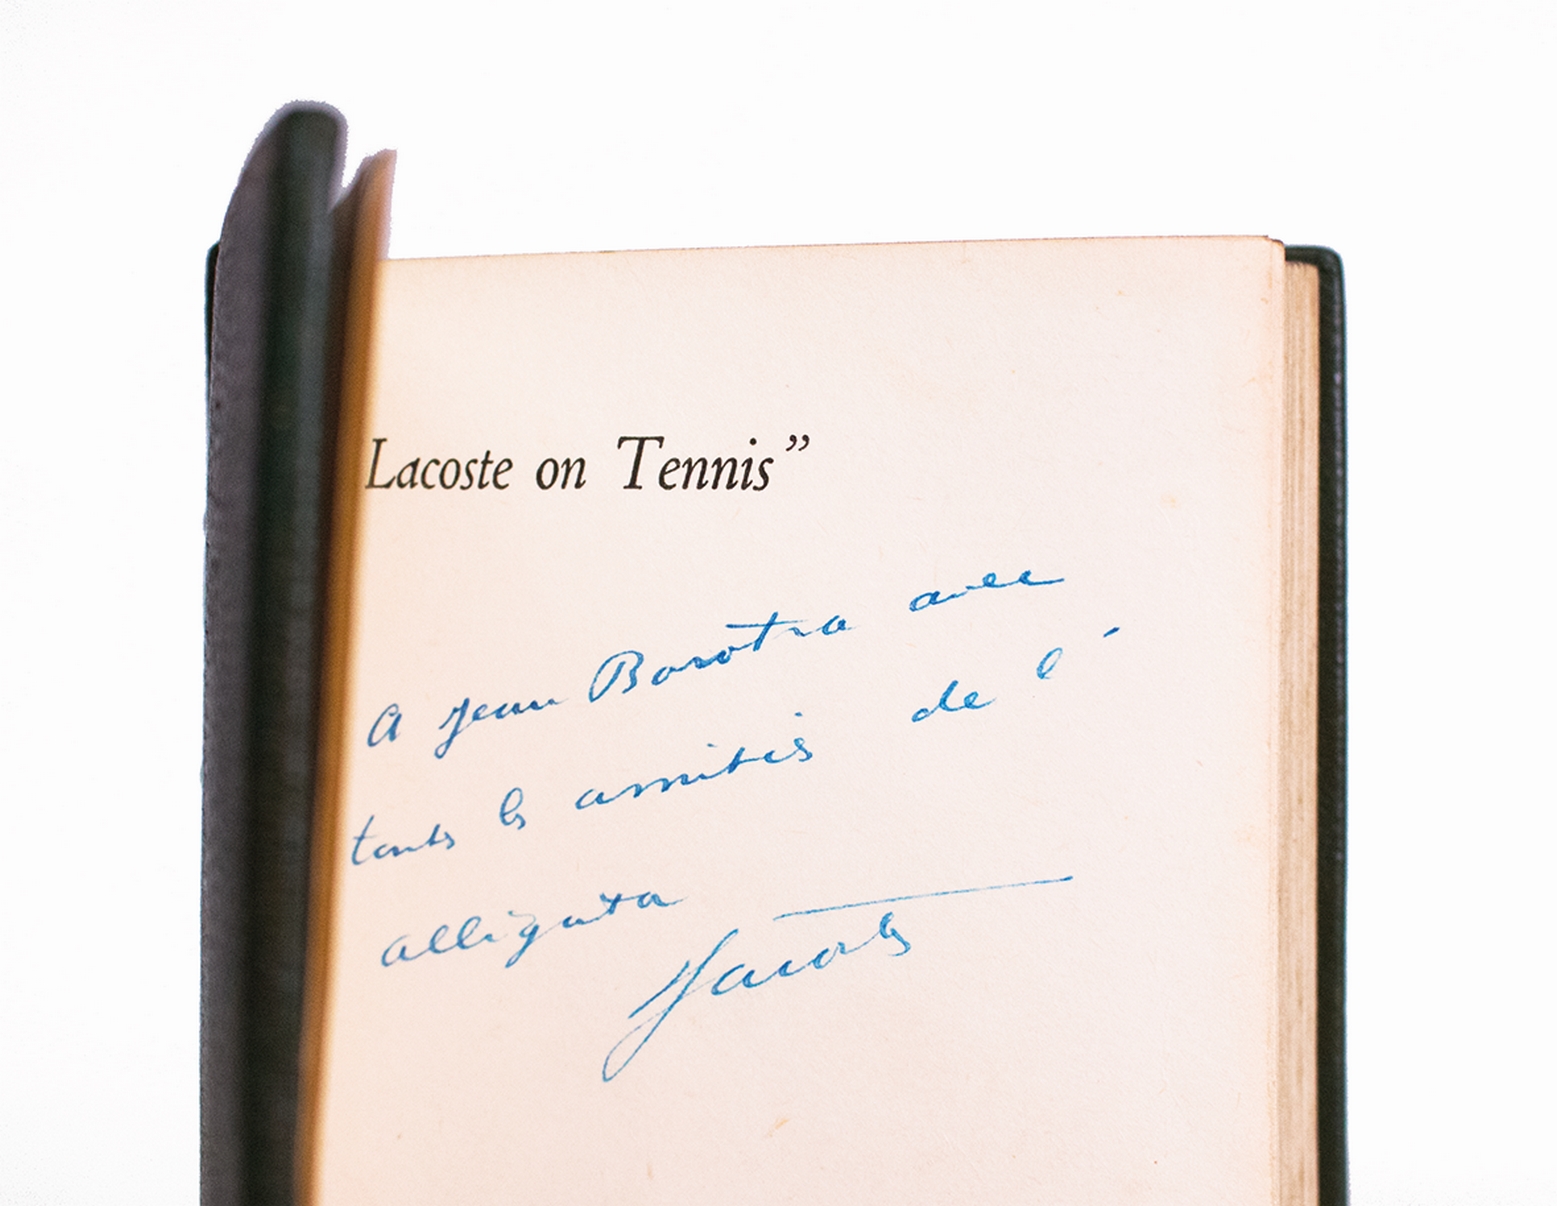 Lacoste on Tennis”
A Jean Borotra avec
touts les amitiés de l'
alligator
Lacoste